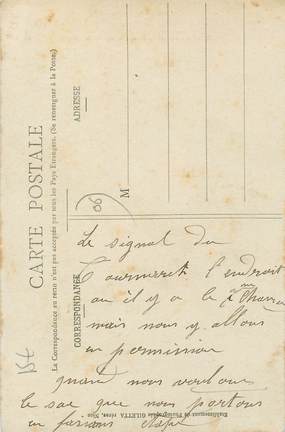 CARTE POSTALE
La Correspondance au recto n'est pas acceptée par tous les Pays Étrangers. (Se renseigner à la Poste).
CORRESPONDANCE
ADRESSE
M
06
Le signal du
l'endroit
ou il y a le
mais nous y allons
en permission
quand nous voulons
le sac que nous portons
en faisant étape
15€
Établissement de Photographie GILETTA frères, Nice